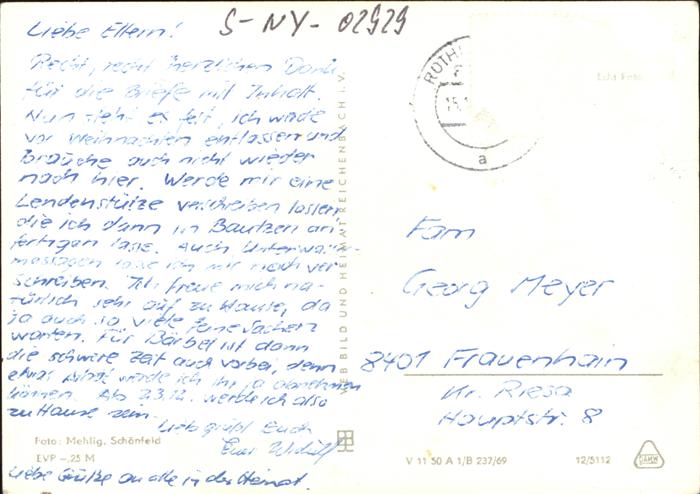 S-NY-02929
Liebe Eltern!
Recht, recht herzlichen Dank
für die Briefe mit Inhalt.
Nun steht es fest, ich werde
vor Weihnachten entlassen und
brauche auch nicht wieder
nach hier. Werde mir eine
Lendenstütze verschreiben lassen,
die ich dann in Bautzen an
fertigen lasse. Auch Unterwasser-
massagen lasse ich mir noch ver
schreiben. Ich freue mich na-
türlich sehr auf zu Hause, da
ja auch so viele feine Sachen
warten. Für Bärbel ist dann
die schwere Zeit auch vorbei, denn
etwas Arbeit werde ich ihr ja abnehmen
können. Ab 23.12. werde ich also
zu Hause sein.
Lieb grüßt Euch
Euer
Liebe Grüße an alle in der Heimat.
Foto: Mehlig, Schönfeld
EVP -,25 M
VEB BILD UND HEIMAT REICHENBACH I. V.
ROTH
15.
a
Echt Foto
Fam
Georg Meyer
8401 Frauenhain
Kr. Riesa
Hauptstr. 8
V 11 50 A 1/B 237/69
12/5112